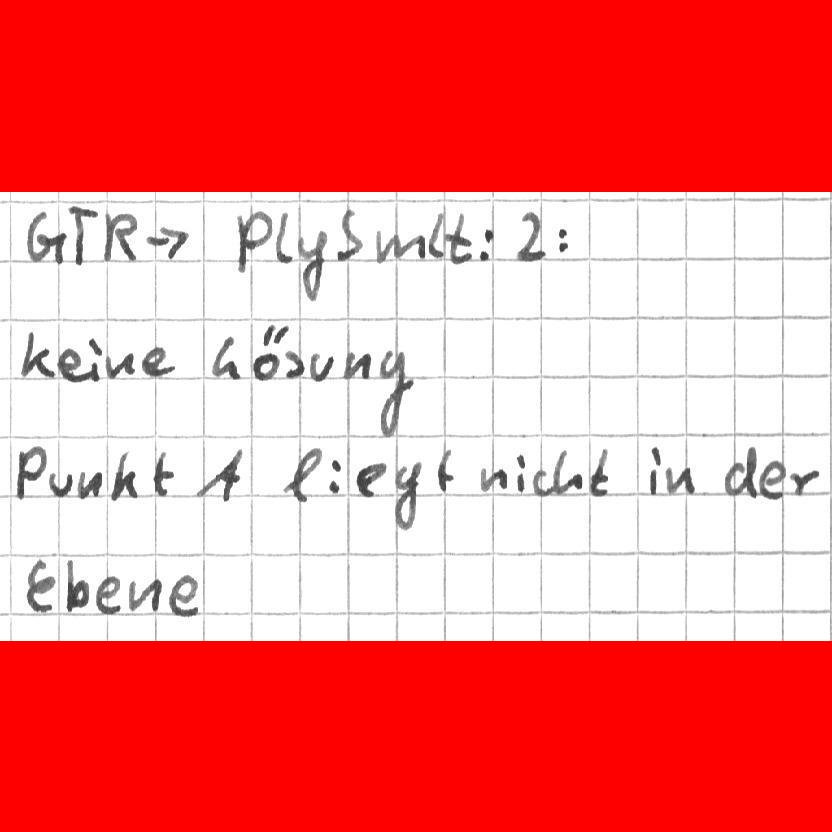 GTR→ PlySmlt: 2:
keine Lösung
Punkt A liegt nicht in der
Ebene